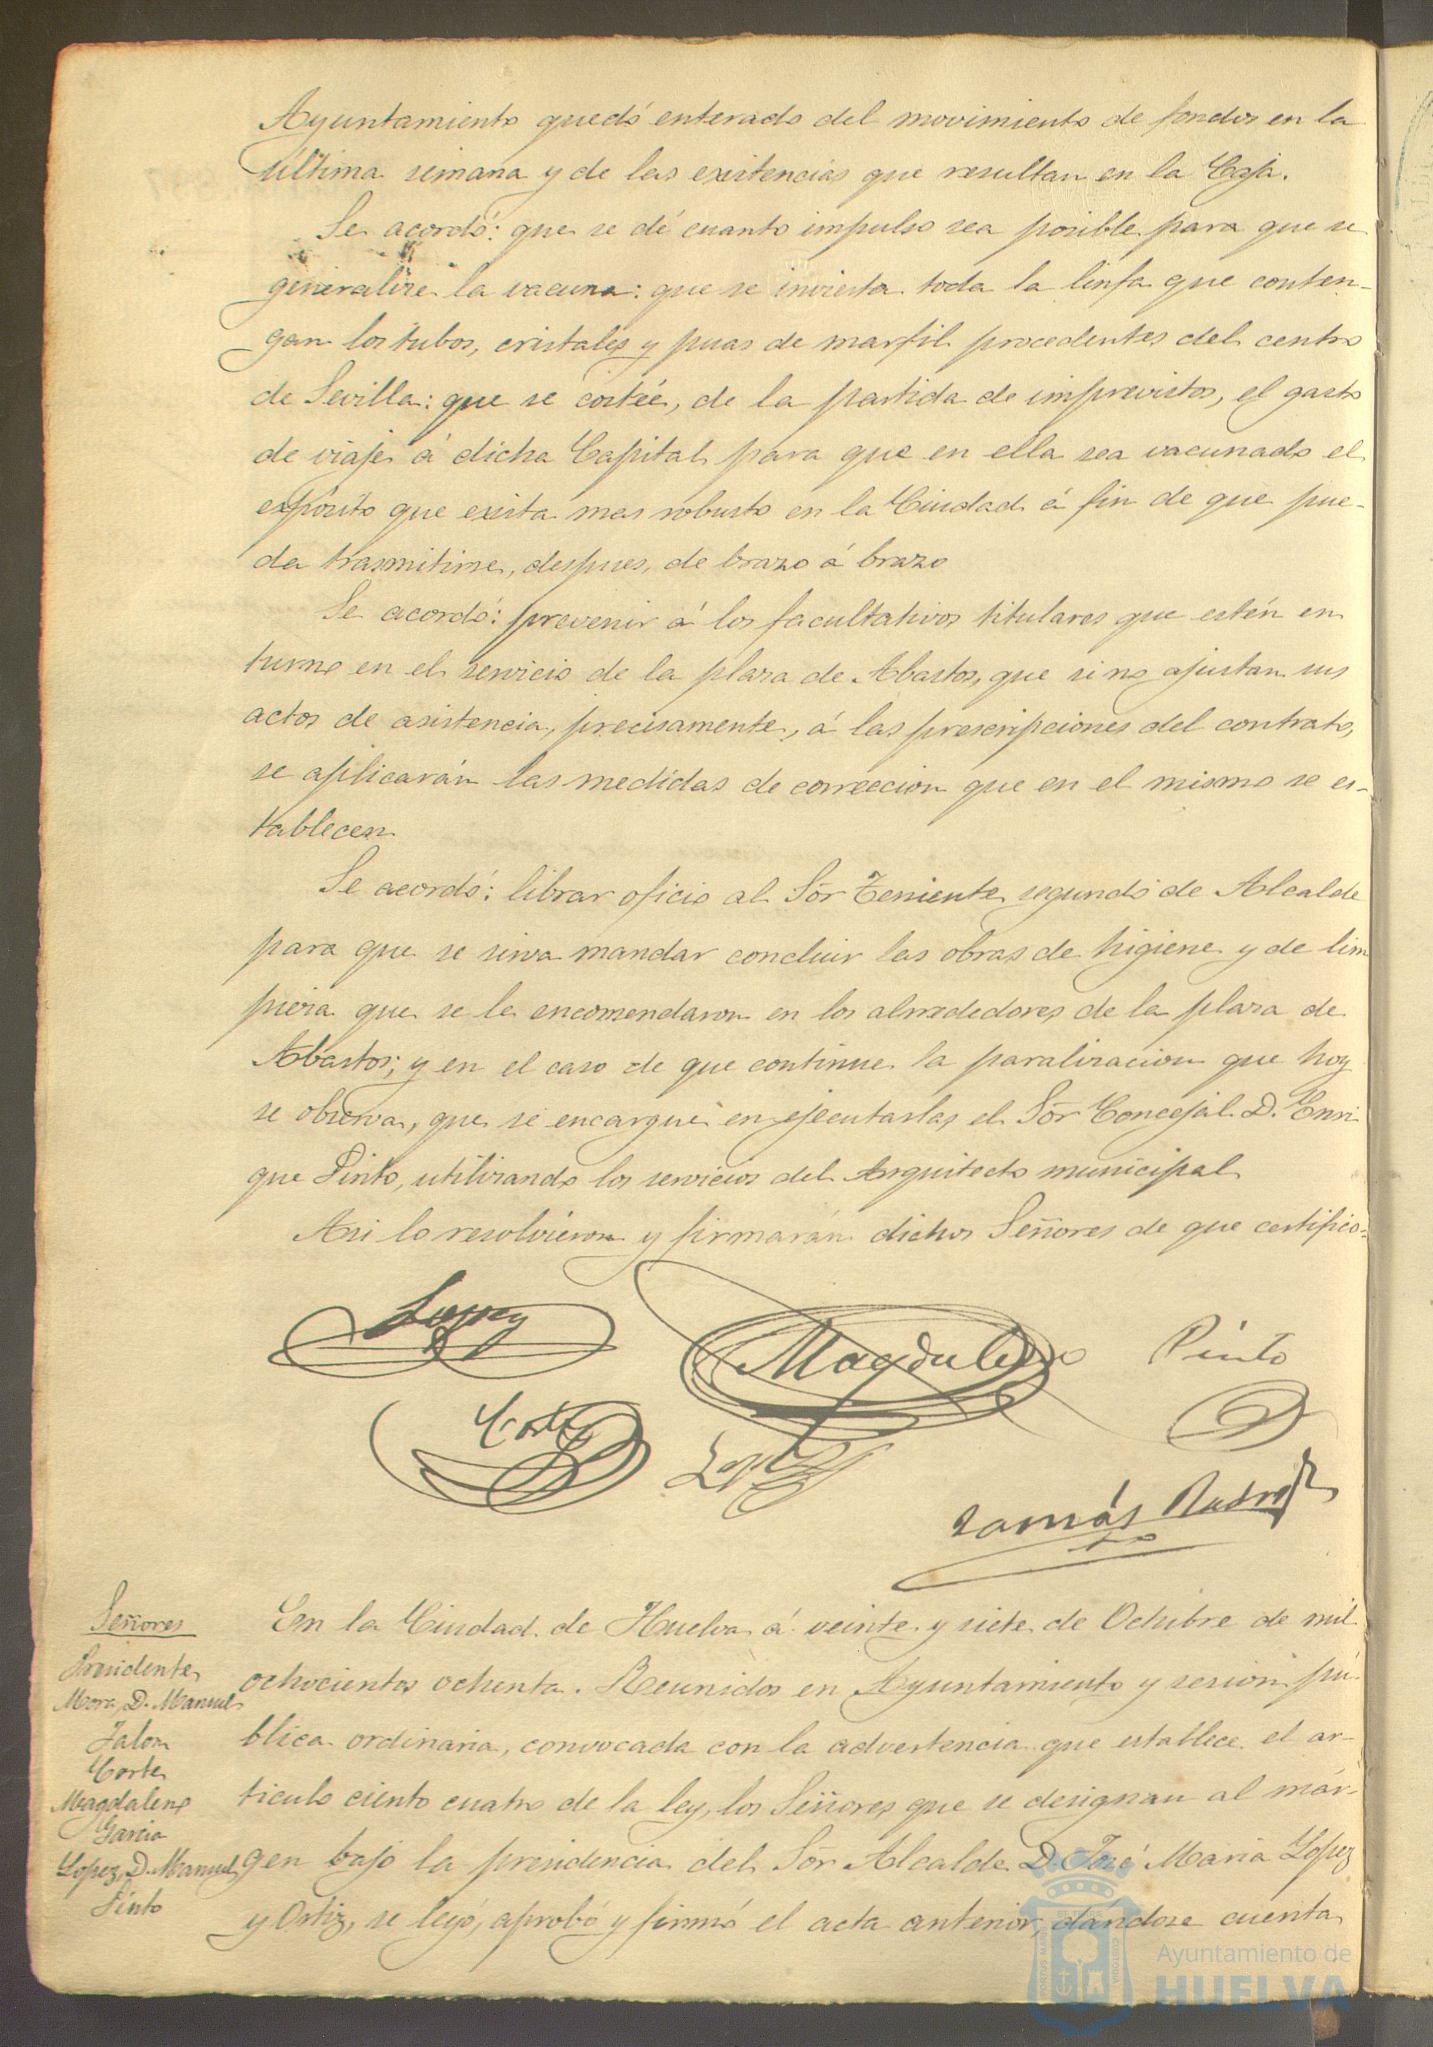 Ayuntamiento quedó enterado del movimiento de fondos en la
última semana y de las existencias que resultan en la Caja.
Se acordó: que se dé cuanto impulso sea posible para que se
generalice la vacuna: que se invierta toda la linfa que conten-
gan los tubos, cristales y puas de marfil procedentes del centro
de Sevilla: que se costée, de la partida de imprevistos, el gasto
de viaje á dicha Capital para que en ella sea vacunado el
expósito que exista mas robusto en la Ciudad á fin de que pue-
da trasmitirse, despues, de brazo á brazo
Se acordó: prevenir á los facultativos titulares que estén en
turno en el servicio de la plaza de Abastos, que si no ajustan sus
actos de asistencia, precisamente, á las prescripciones del contrato,
se aplicarán las medidas de correccion que en el mismo se es-
tablecen
Se acordó: librar oficio al Sor Teniente segundo de Alcalde
para que se sirva mandar concluir las obras de higiene y de lim
pieza que se le encomendaron en los alrrededores de la plaza de
Abastos; y en el caso de que continue la paralizacion que hoy
se observa, que se encargue en ejecutarlas el Sor Concejal D. Enri
que Pinto, utilizando los servicios del Arquitecto municipal
Asi lo resolvieron y firmarán dichos Señores de que certifico=
Lopez
Magdaleno
Pinto
Corte
Lopez
Tomás
En la Ciudad de Huelva á veinte y siete de Octubre de mil
ochocientos ochenta. Reunidos en Ayuntamiento y sesion pú-
blica ordinaria, convocada con la advertencia que establece el ar-
ticulo ciento cuatro de la ley, los Señores que se designan al már-
gen bajo la presidencia del Sor Alcalde D. José Maria Lopez
y Ortiz, se leyó, aprobó y firmó el acta anterior, dandose cuenta
Señores
Presidente
Mora, D. Manuel
Jalon
Corte
Magdaleno
Garcia
Lopez, D. Manuel
Pinto
Ayuntamiento de
HUELVA